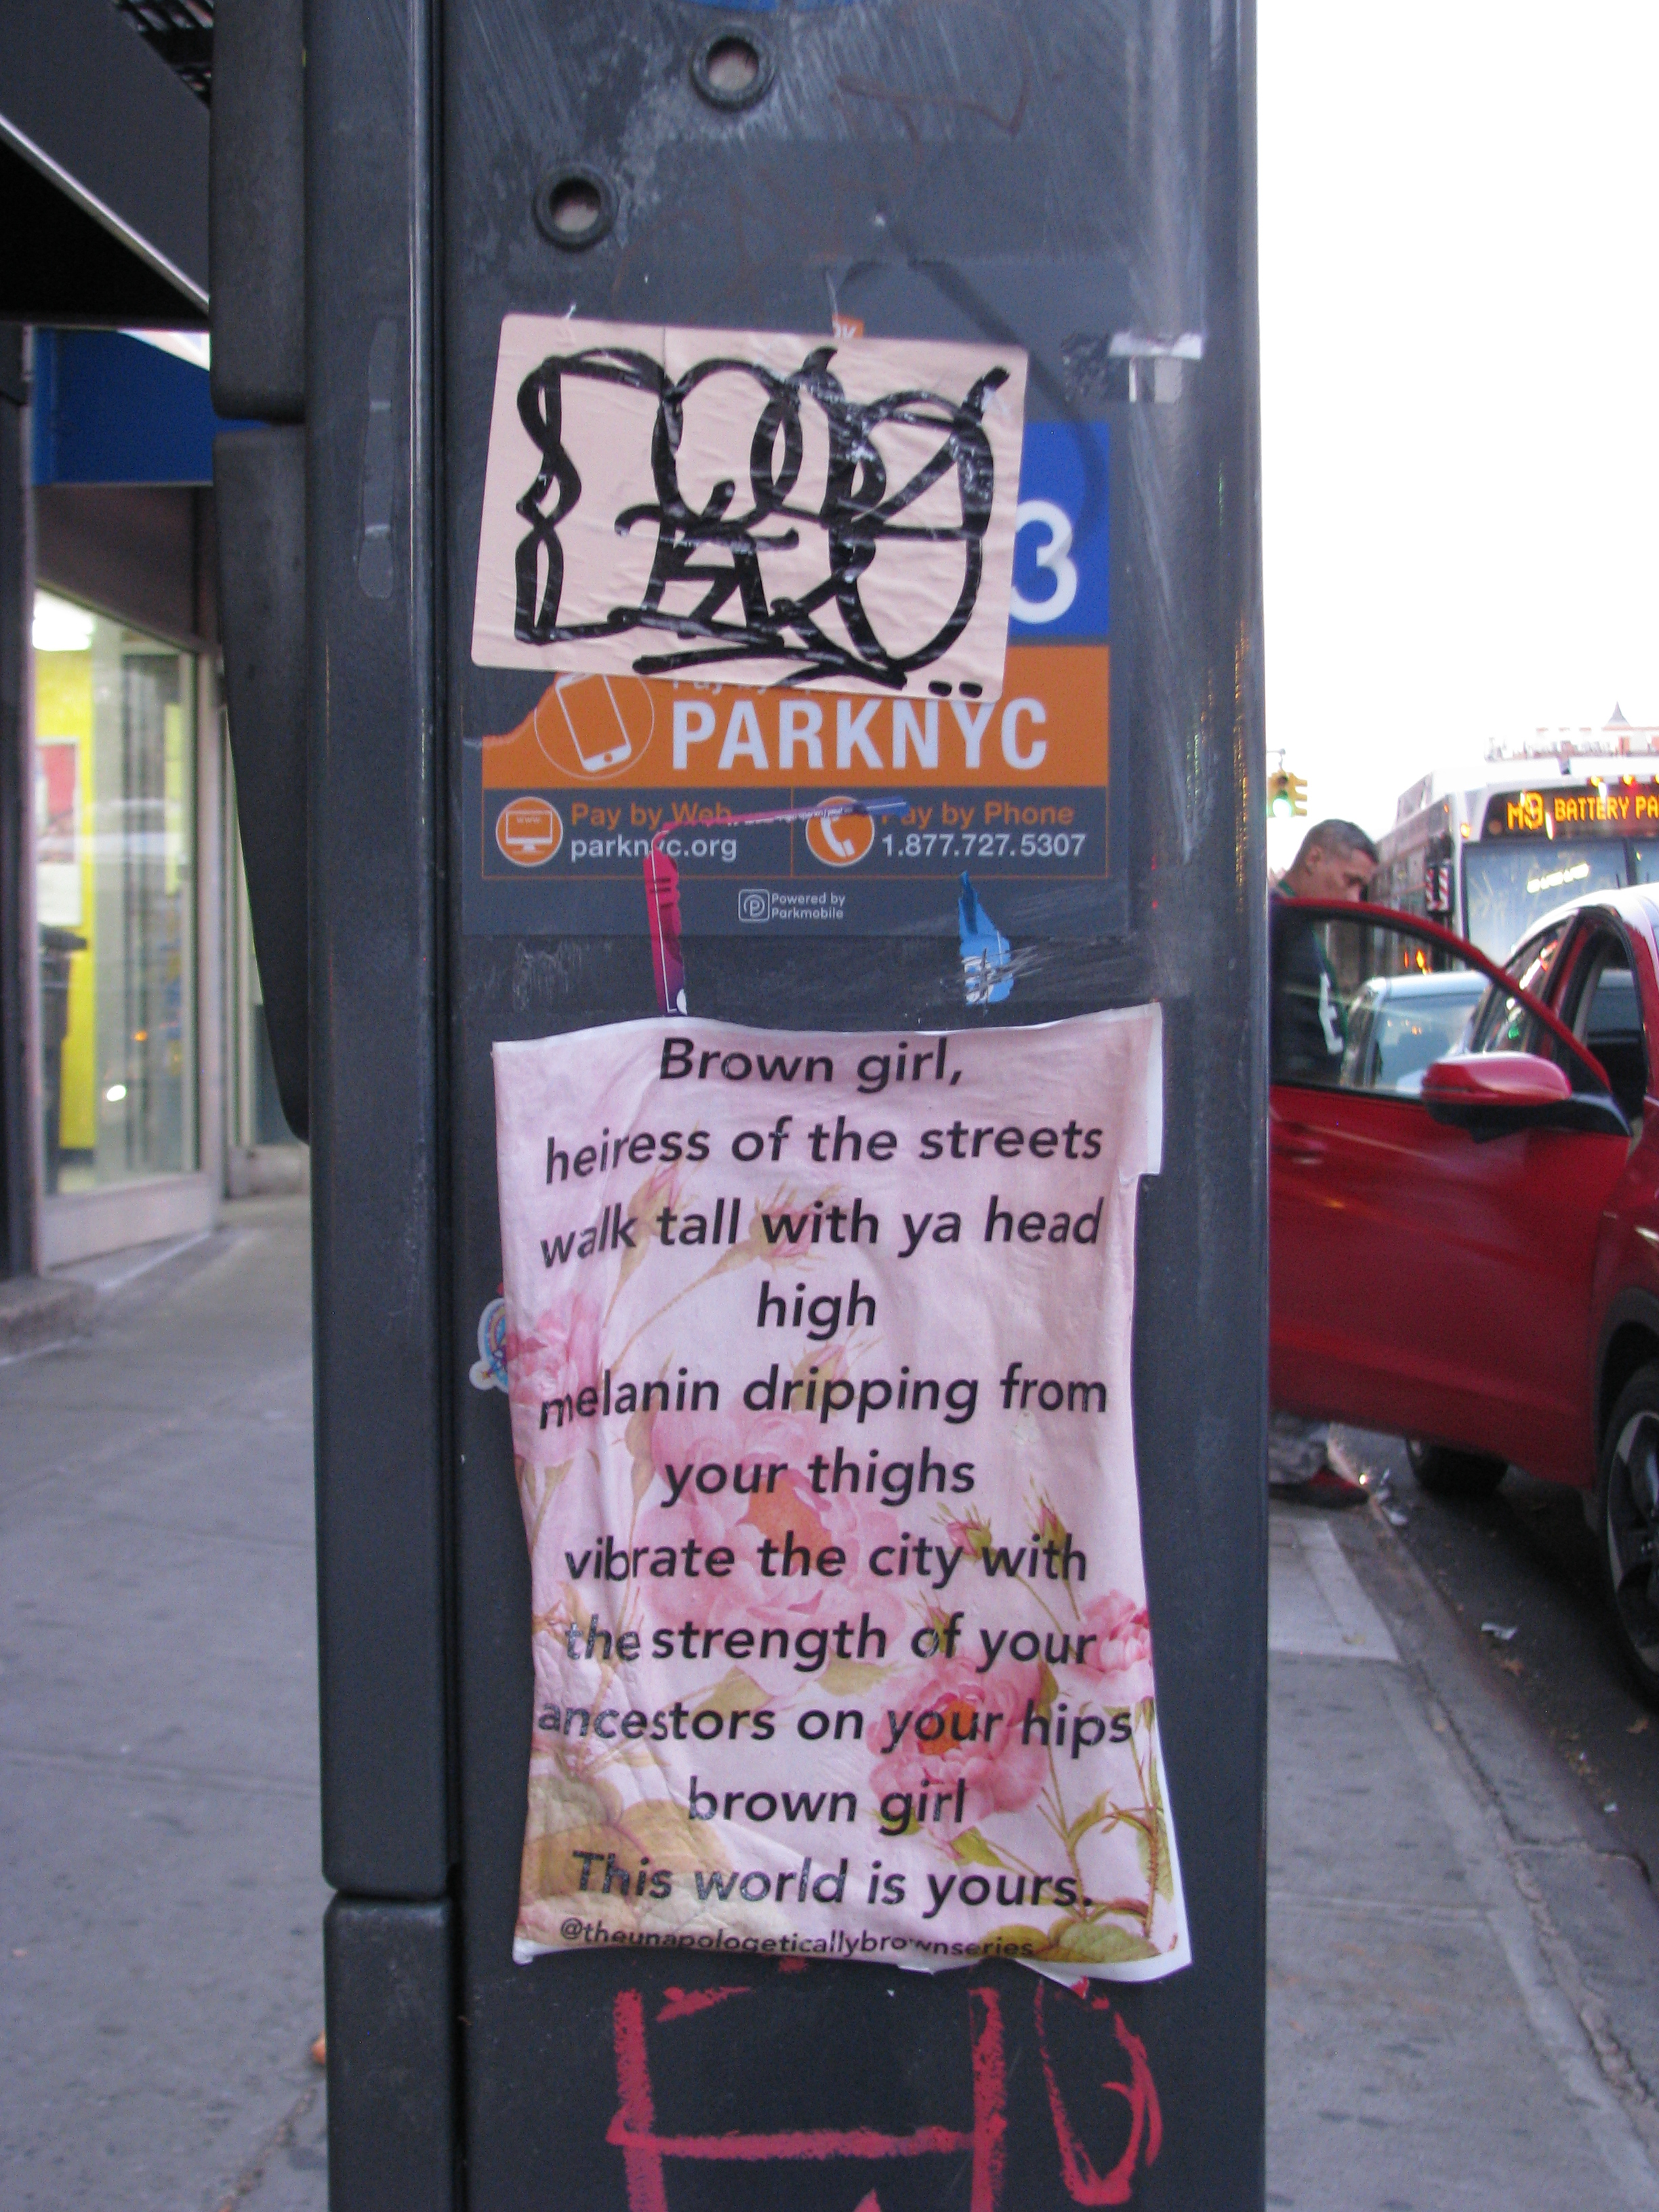 3
PARKNYC
Pay by Web
parknyc.org
Pay by Phone
1.877.727.5307
Powered by
Parkmobile
M9 BATTERY PA
Brown girl,
heiress of the streets
walk tall with ya head
high
melanin dripping from
your thighs
vibrate the city with
the strength of your
ancestors on your hips
brown girl
This world is yours.
@theunapologeticallybrownseries